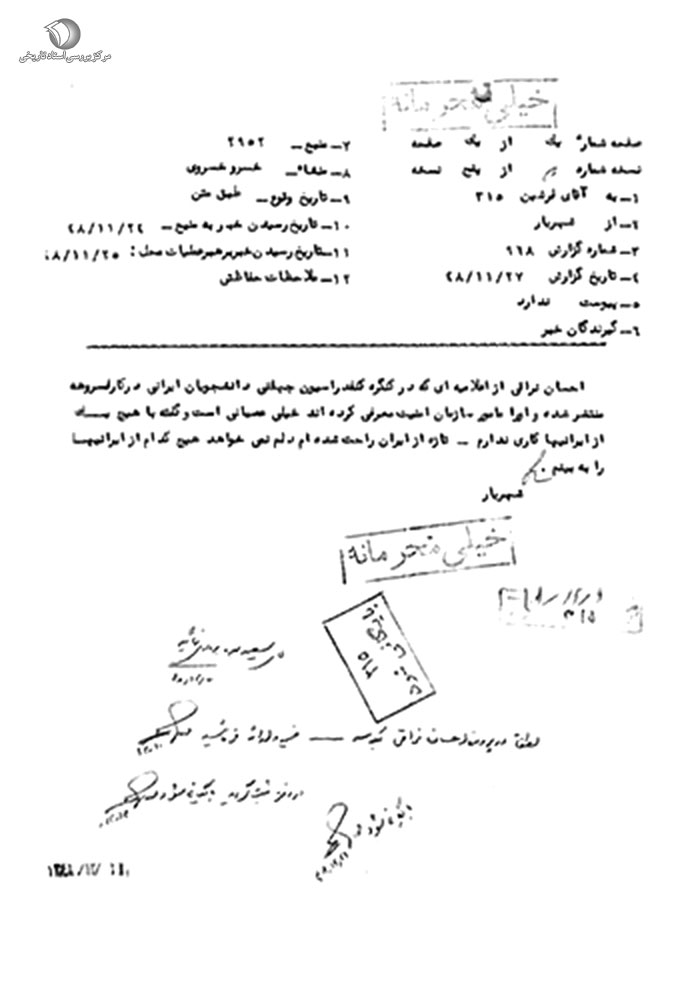 مرکز بررسی اسناد تاریخی
خیلی محرمانه
صفحه شماره یک از یک صفحه
نسخه شماره از پنج نسخه
۱ــ به آقای فرشین ۳۱۵
۲ــ از شهریار
۳ــ شماره گزارش ۹۱۸
۴ــ تاریخ گزارش ۴۸/۱۱/۲۷
۵ــ پیوست ندارد
۶ــ گیرندگان خبر
۷ــ منبع ــ ۲۹۵۲
۸ــ منشاء ــ خسرو خسروی
۹ــ تاریخ وقوع ــ طبق متن
۱۰ــ تاریخ رسیدن خبر به منبع ــ ۴۸/۱۱/۲۴
۱۱ــ تاریخ رسیدن خبر برهبر عملیات محل : ۴۸/۱۱/۲۵
۱۲ــ ملاحظات حفاظتی
احسان نراقی از اعلامیه ای که در کنگره کنفدراسیون جهانی دانشجویان ایرانی در کارلسروهه
منتشر شده و اورا مامور سازمان امنیت معرفی کرده اند خیلی عصبانی است و گفته با هیچ یک
از ایرانیها کاری ندارم ــ تازه از ایران راحت شده ام دلم نمی خواهد هیچ کدام از ایرانیها
را به بینم
شهریار
خیلی محرمانه
۳۱۵
لطفا در پرونده احسان نراقی
بایگانی شود